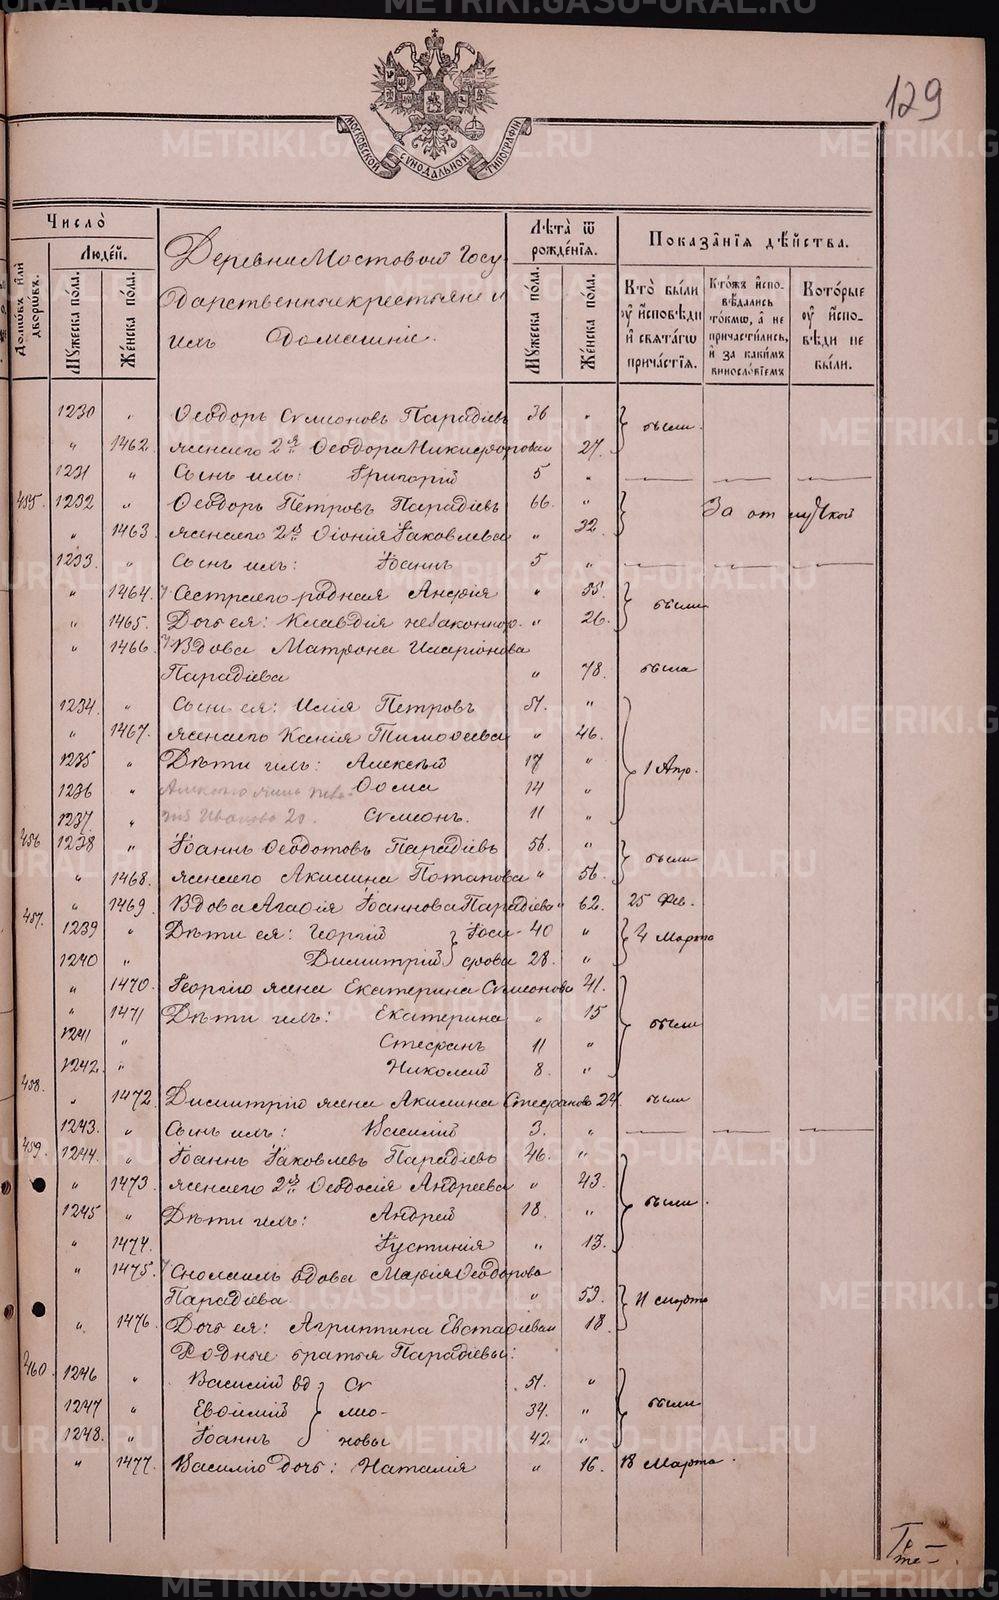 129
МОСКОВСКОЙ СѴНОДАЛЬНОЙ ТИПОГРАФІИ
Число̀
Людей.
Домѡвъ и҆лѝ дворѡвъ.
Мꙋжеска по́ла.
Же́нска по́ла.
Деревни Мостовой Госу
дарственные крестьяне и
ихъ домашніе.
Лѣ̑та ѿ рожде́нїѧ.
Мꙋжеска по́ла.
Же́нска по́ла.
Показа̑нїѧ дѣ́йства.
Кто̀ были ᲂу҆ и҆́сповѣди и҆ свѧта́гѡ причастїѧ.
Кто́жъ и҆спо-вѣдались то́кмѡ, а҆ не причасти́лись, и҆ за каки́мъ винослов́їемъ
Кото́рые ᲂу҆ и҆́спо-вѣди не бы́ли.
1230 „ Ѳеодоръ Симоновъ Парадіевъ 36 „ были.
„ 1462. жена его 2я Ѳеодора Никифорова 27.
1231 „ Сынъ ихъ: Григорій 5 „
455. 1232 „ Ѳеодоръ Петровъ Парадіевъ 66. „ За отлучкой
„ 1463 жена его 2я Ѳіонія Іаковлева „ 32.
1233. „ Сынъ ихъ: Іоаннъ 5 „
„ 1464. Сестра его родная Анфія „ 55. были
„ 1465. Дочь ея: Клавдія незаконнор. „ 26.
„ 1466 Вдова Матрона Иларіонова
Парадіева „ 78. была
1234. „ Сынъ ея: Илія Петровъ 51. „
„ 1467. жена его Ксенія Тимоѳеева „ 46.
1235 „ Дѣти ихъ: Алексѣй 17 „ 1 Апр.
1236 „ Ѳома 14 „
1237 „ Симеонъ. 11 „
456 1238 „ Іоаннъ Ѳеодотовъ Парадіевъ 56. „ были
„ 1468. жена его Акилина Потапова „ 56.
457. „ 1469 Вдова Агафія Іоаннова Парадіева „ 62. 25 Фев.
1239 „ Дѣти ея: Георгій } Іоси- 40 „ 4 Марта
1240 „ Димитрій } фовы 28. „
„ 1470. Георгію жена Екатерина Симеонова 41.
„ 1471 Дѣти ихъ: Екатерина „ 15 были
1241 „ Стефанъ 11 „
1242. „ Николай 8. „
458. „ 1472. Димитрію жена Акилина Стефанова 24. были
1243. „ Сынъ ихъ: Василій 3. „
459. 1244. „ Іоаннъ Іаковлевъ Парадіевъ 46. „
„ 1473 жена его 2я Ѳеодосія Андреева „ 43. были.
1245 „ Дѣти ихъ: Андрей 18. „
„ 1474. Іустинія „ 13.
„ 1475. Сноха ихъ вдова Марѳія Ѳеодорова
Парадіева. „ 53. 11 марта
„ 1476. Дочь ея: Агриппина Евстафіева 18.
Родные братья Парадіевы:
460. 1246 „ Василій вд } Си 51. „
1247 „ Евѳимій } мео- 34. „ были
1248. „ Іоаннъ } новы 42. „
„ 1477. Василію дочь: Наталія „ 16. 18 Марта.
METRIKI.GASO-URAL.RU